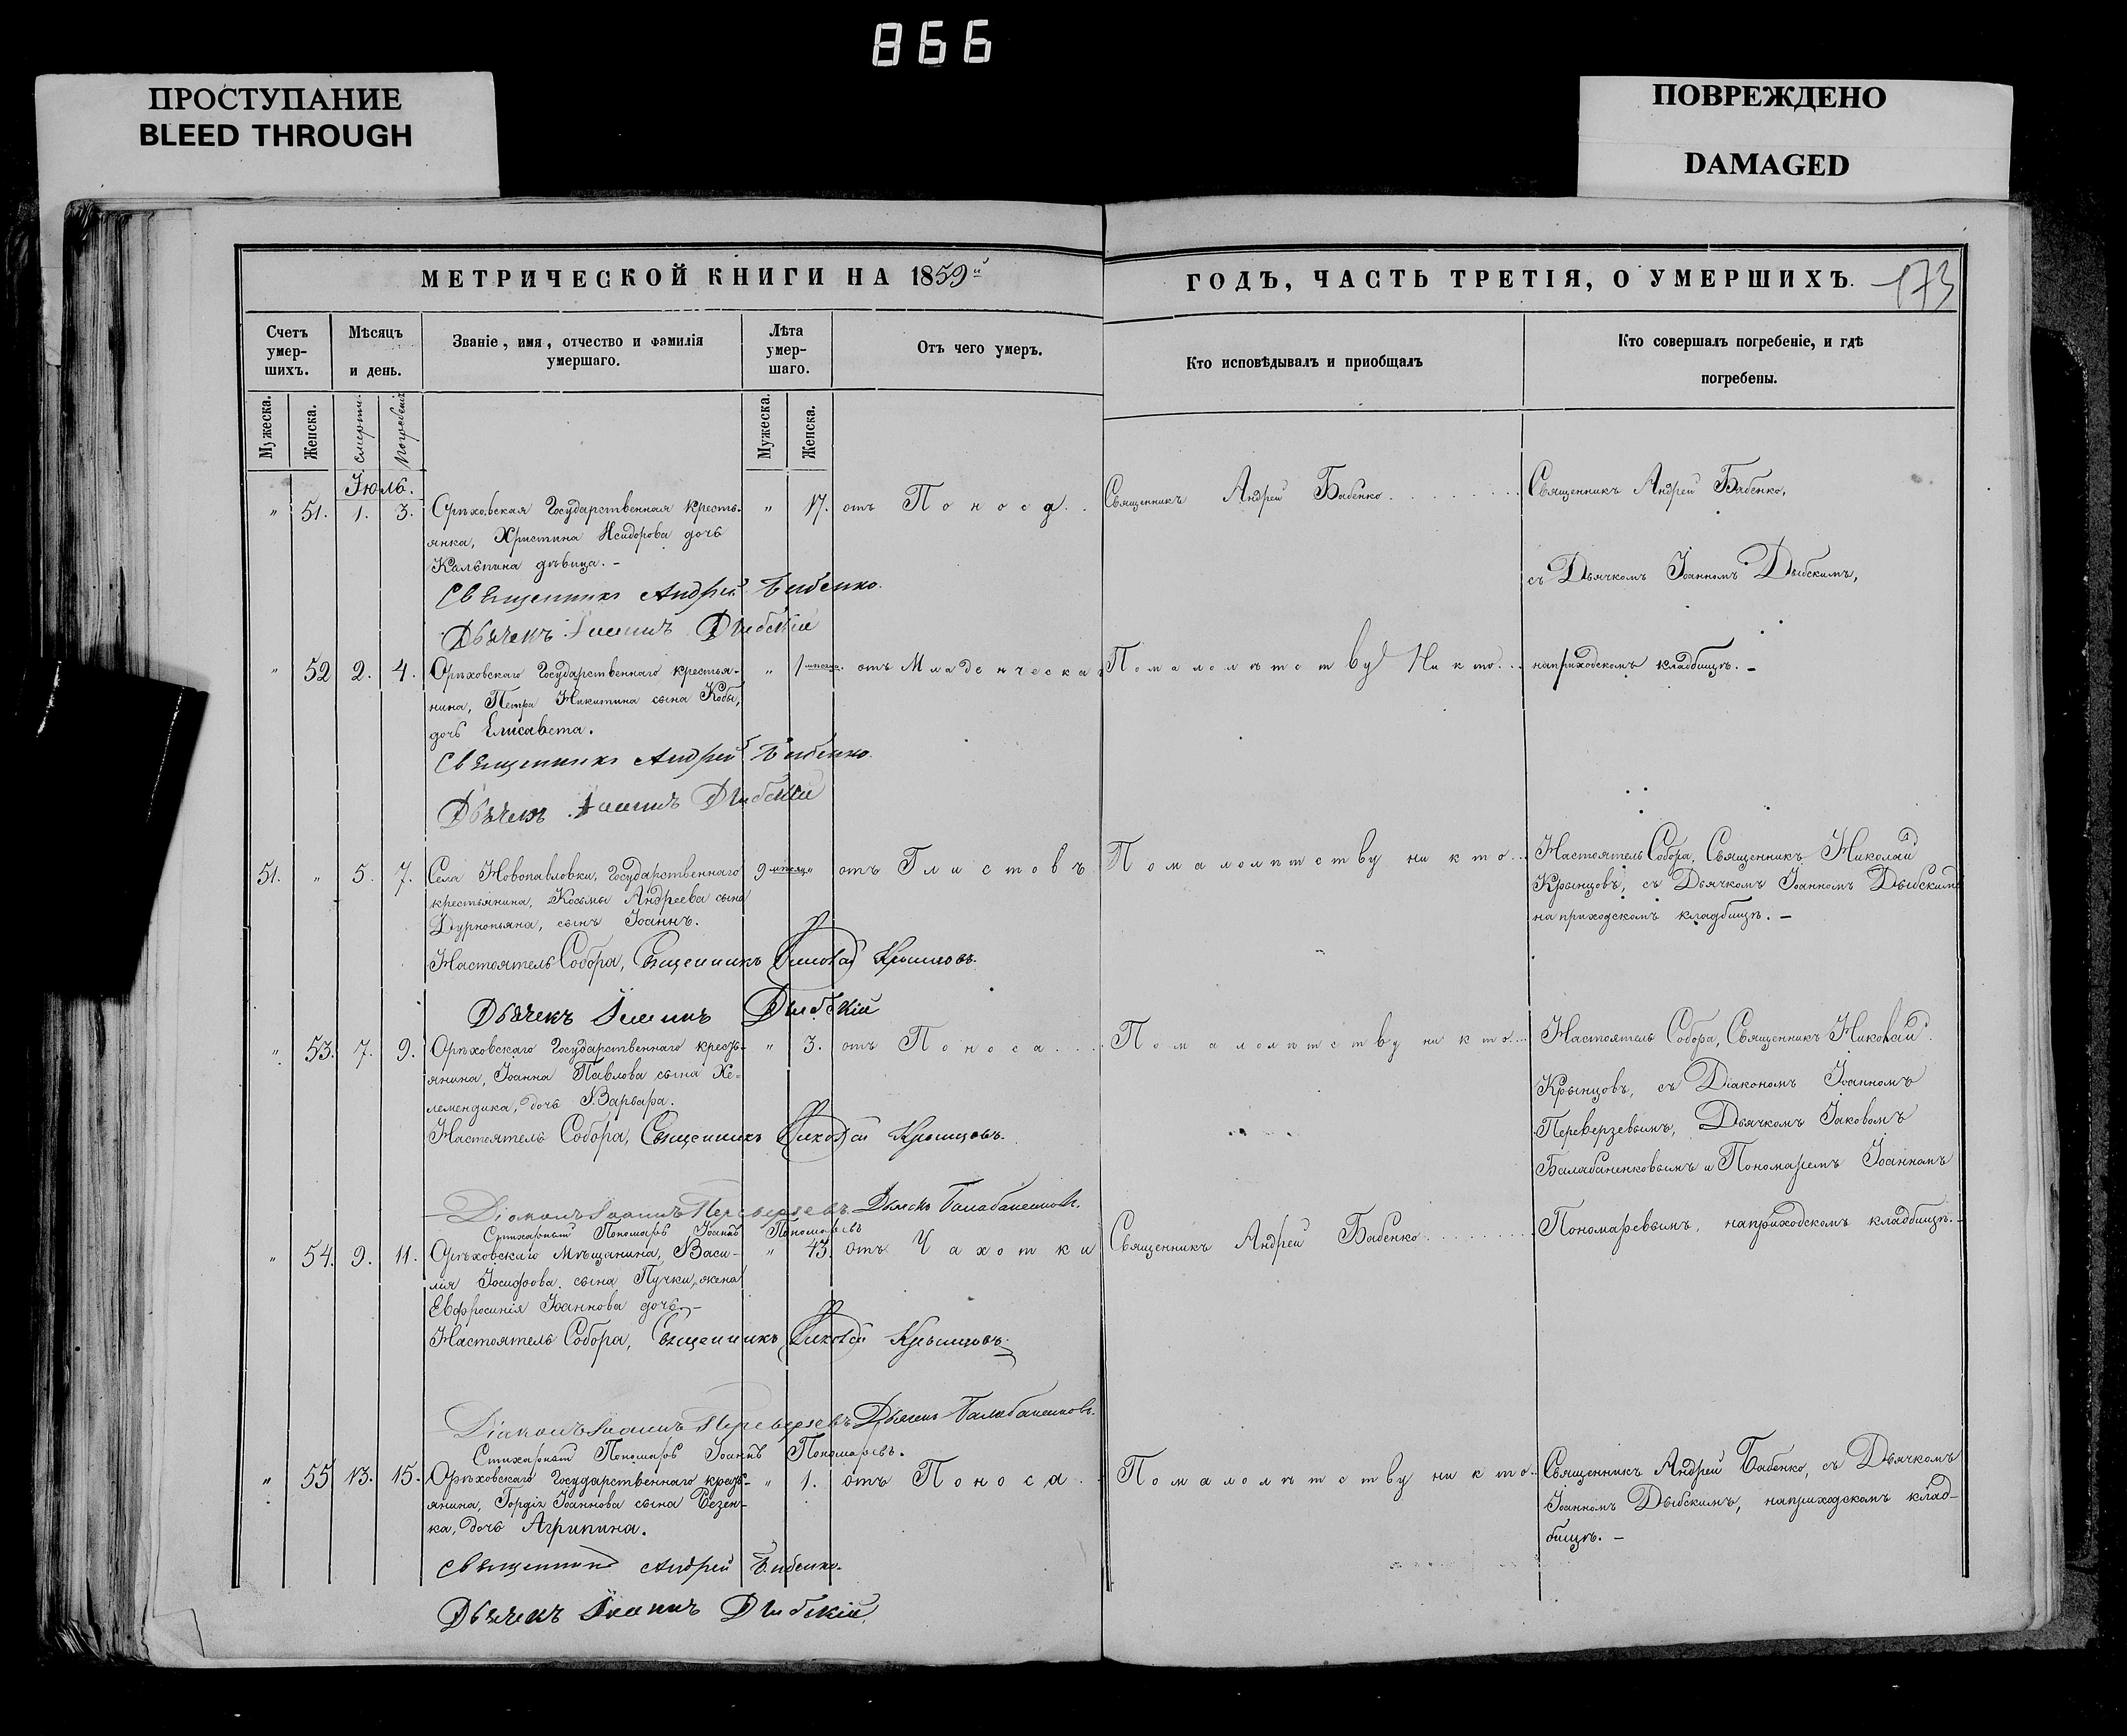 866
ПРОСТУПАНИЕ
BLEED THROUGH
ПОВРЕЖДЕНО
DAMAGED
МЕТРИЧЕСКОЙ КНИГИ НА 1859й
ГОДЪ, ЧАСТЬ ТРЕТІЯ, О УМЕРШИХЪ.
173
Счетъ умер-
шихъ.
Мѣсяцъ
и день.
Званіе, имя, отчество и фамилія
умершаго.
Лѣта
умер-
шаго.
Отъ чего умеръ.
Кто исповѣдывалъ и пріобщалъ
Кто совершалъ погребеніе, и гдѣ
погребены.
Мужеска.
Женска.
смерти.
погребенія
Мужеска.
Женска.
Іюль.
" 51. 1. 3. Орѣховская Государственная кресть-
янка, Христина Исидорова дочь
дѣвица. -
" 17. отъ Поноса.
Священникъ Андрей Бабенко
Священникъ Андрей Бабенко,
съ Дьячкомъ Іоанномъ Дыбскимъ,
на приходскомъ кладбищѣ. -
Священникъ Андрей Бабенко.
Дьячекъ Іоаннъ Дыбскій
" 52 2. 4. Орѣховскаго Государственнаго крестья-
нина, Петра Никитина сына Кобы,
дочь Елисавета.
" 1 мѣсяца. отъ Младенческа
По малолѣтству Никто
Священникъ Андрей Бабенко.
Дьячекъ Іоаннъ Дыбскій
51. " 5. 7. Села Новопавловки, Государственнаго
крестьянина, Косьмы Андреева сына
Дурнопьяна, сынъ Іоаннъ.
9 мѣсяц. " отъ Глистовъ
По малолѣтству никто
Настоятель Собора, Священникъ Николай
Крынцовъ, съ Дьячкомъ Іоанномъ Дыбскимъ
на приходскомъ кладбищѣ. -
Настоятель Собора, Священникъ Николай Крынцовъ.
Дьячекъ Іоаннъ Дыбскій
" 53. 7. 9. Орѣховскаго Государственнаго кресть-
янина, Іоанна Павлова сына Хе-
лемендика, дочь Варвара.
" 3. отъ Поноса
По малолѣтству никто
Настоятель Собора, Священникъ Николай
Крынцовъ, съ Діакономъ Іоанномъ
Переверзевымъ, Дьячкомъ Іаковомъ
Балабаненковымъ и Пономаремъ Іоанномъ
Пономаревымъ, на приходскомъ кладбищѣ.
Настоятель Собора, Священникъ Николай Крынцовъ.
Діаконъ Іоаннъ Переверзевъ Дьячекъ Балабаненковъ.
Стихарный Пономарь Іоаннъ Пономаревъ
" 54. 9. 11. Орѣховскаго Мѣщанина, Васи-
лія Іосифова сына Пучки, жена
Евфросинія Іоаннова дочь. -
" 43. отъ Чахотки
Священникъ Андрей Бабенко
Настоятель Собора, Священникъ Николай Крынцовъ.
Діаконъ Іоаннъ Переверзевъ Дьячекъ Балабаненковъ.
Стихарный Пономарь Іоаннъ Пономаревъ.
" 55 13. 15. Орѣховскаго Государственнаго кресть-
янина, Гордія Іоаннова сына Безен-
ка, дочь Агрипина.
" 1. отъ Поноса
По малолѣтству никто
Священникъ Андрей Бабенко, съ Дьячкомъ
Іоанномъ Дыбскимъ, на приходскомъ клад-
бищѣ. -
Священникъ Андрей Бабенко.
Дьячекъ Іоаннъ Дыбскій.